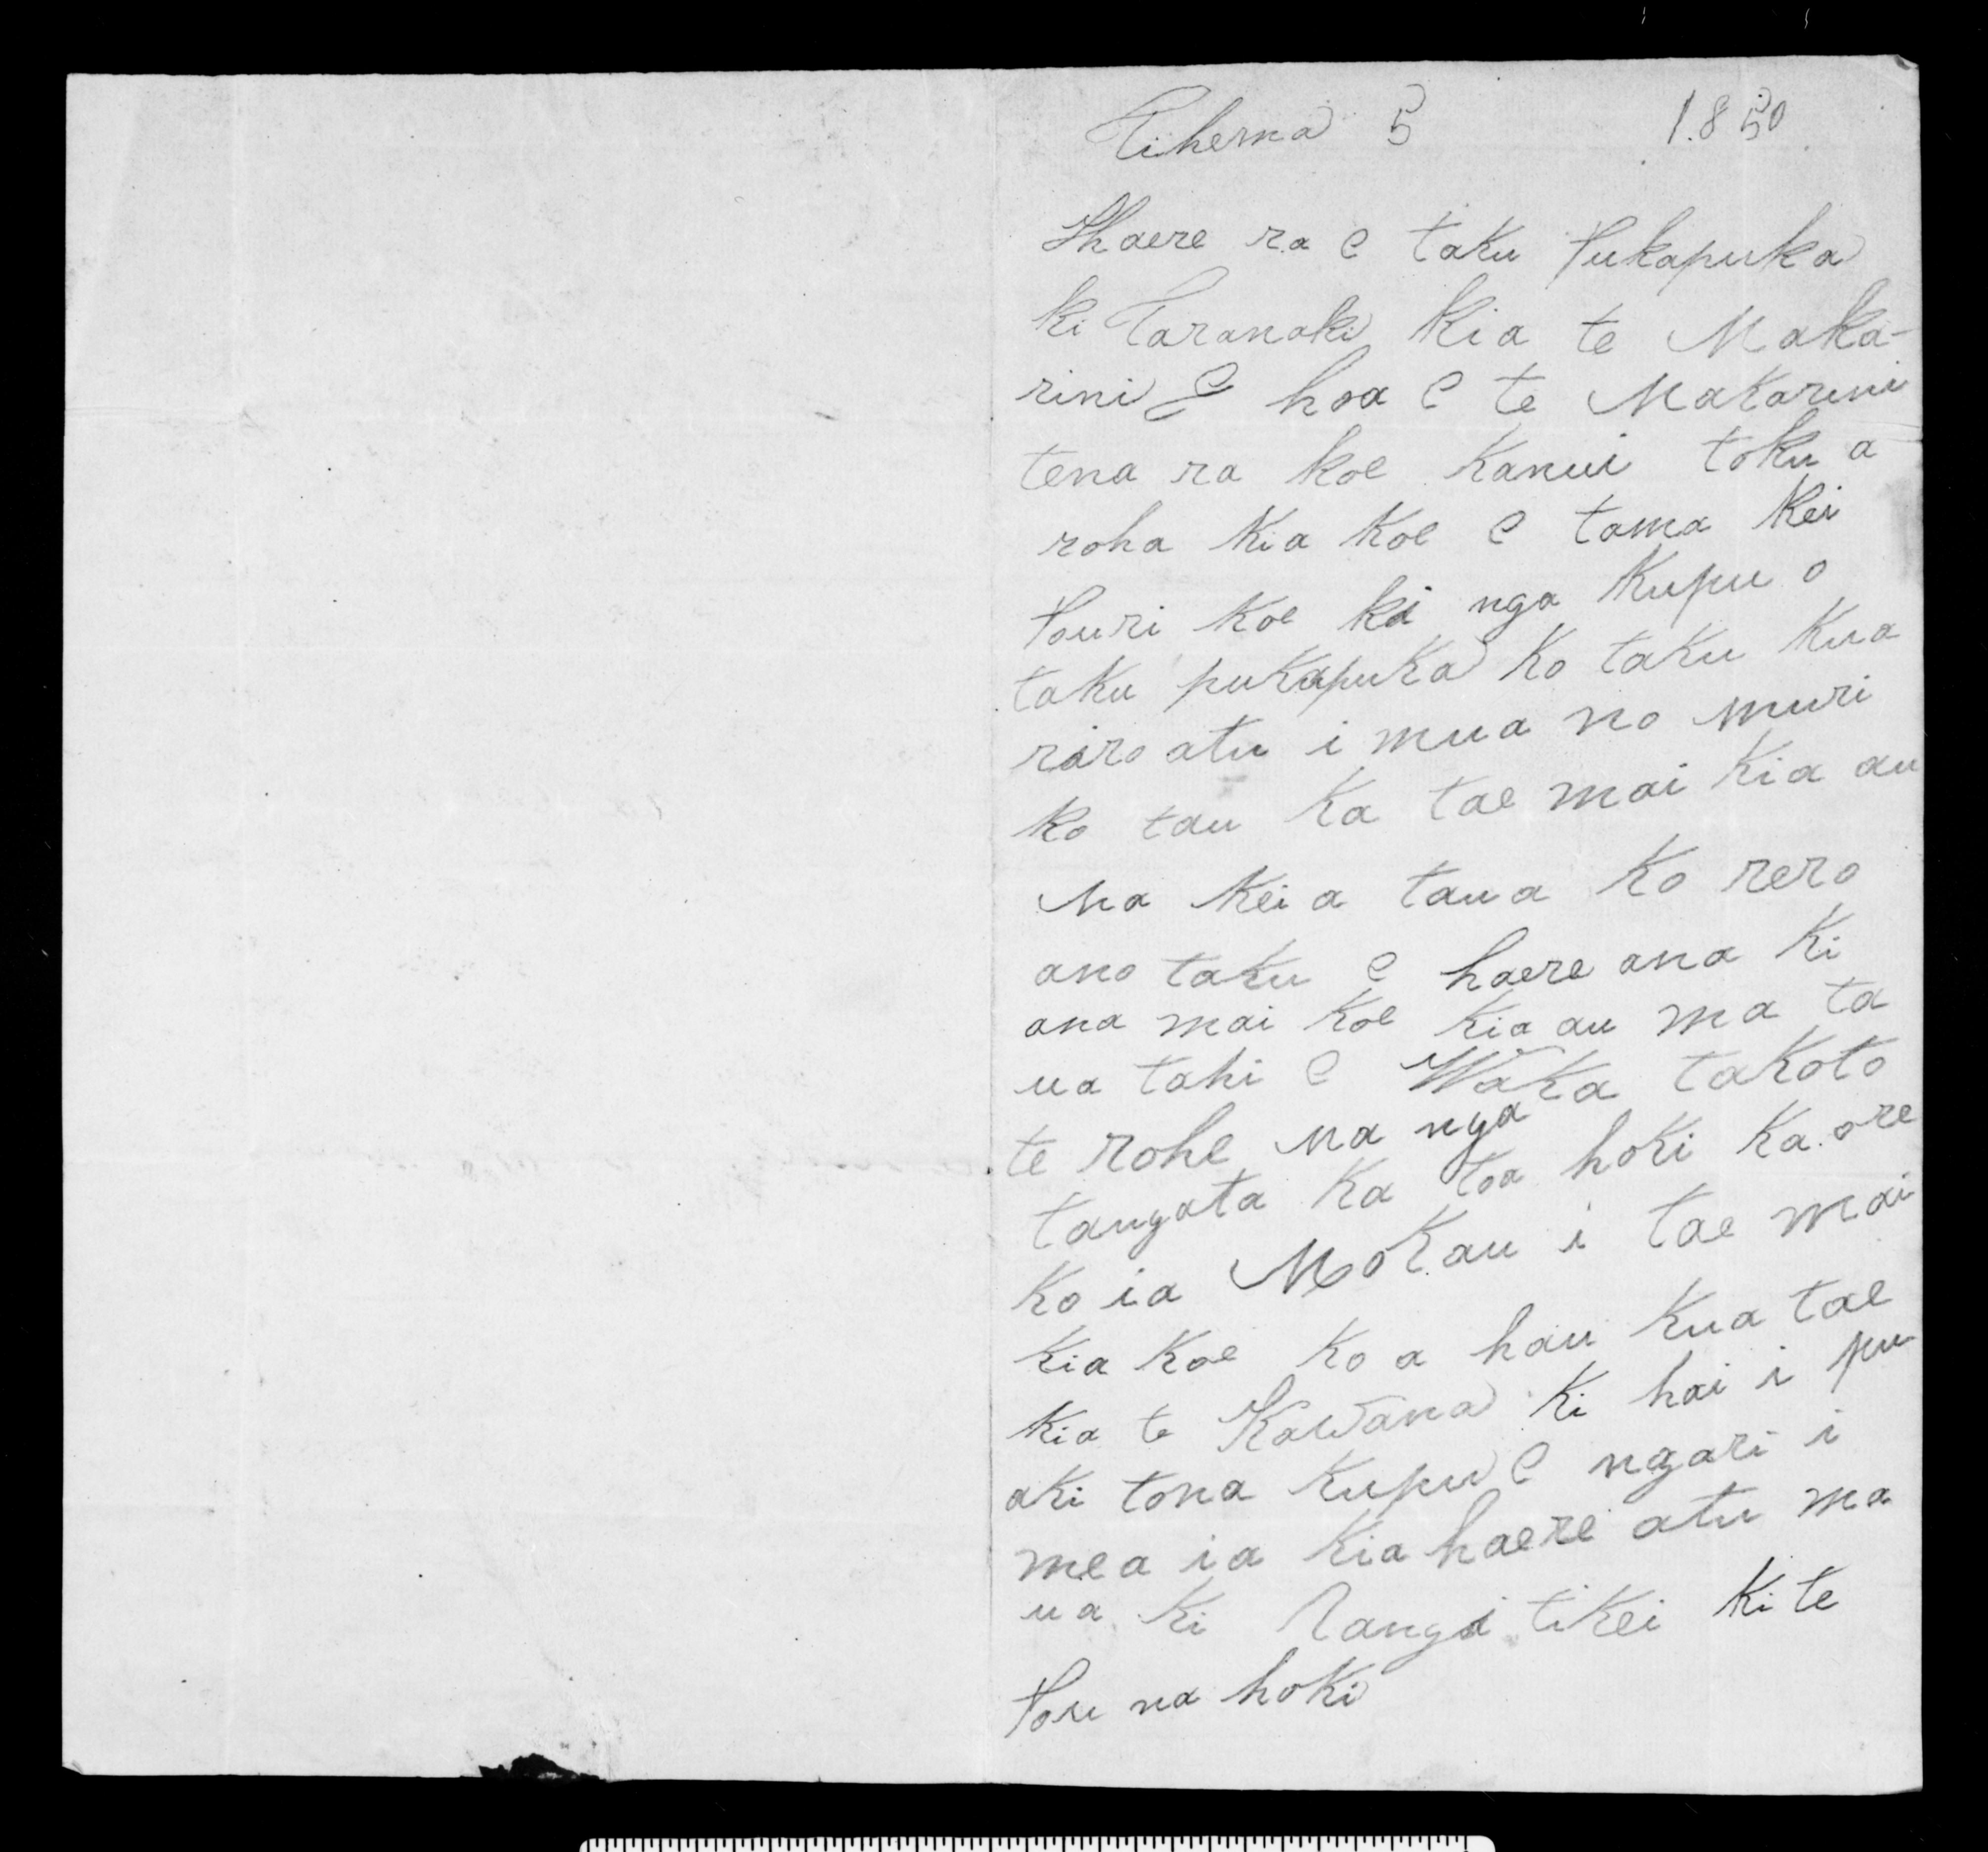 Tihema 5 1.850
Haere ra e taku Pukapuka
ki Taranaki kia te Maka-
rini E hoa e te Makarini
tena ra koe Kanui toku a
roha kia koe e tama kei
Pouri koe ki nga kupu o
taku pukapuka ko taku kua
riro atu i mua no muri
ko tau ka tae mai kia au
na kei a taua ko rero
ano taku e haere ana ki
ana mai koe kia au ma ta
ua tahi e Waka takoto
te rohe na nga
tangata ka toa hoki ka ore
ko ia Mokau i tae mai
kia koe ko a hau kua tae
kia te Kawana ki hai i pu
aki tona kupu e ngari i
mea ia kia haere atu ma
ua ki Rangitikei ki te
Pou na hoki